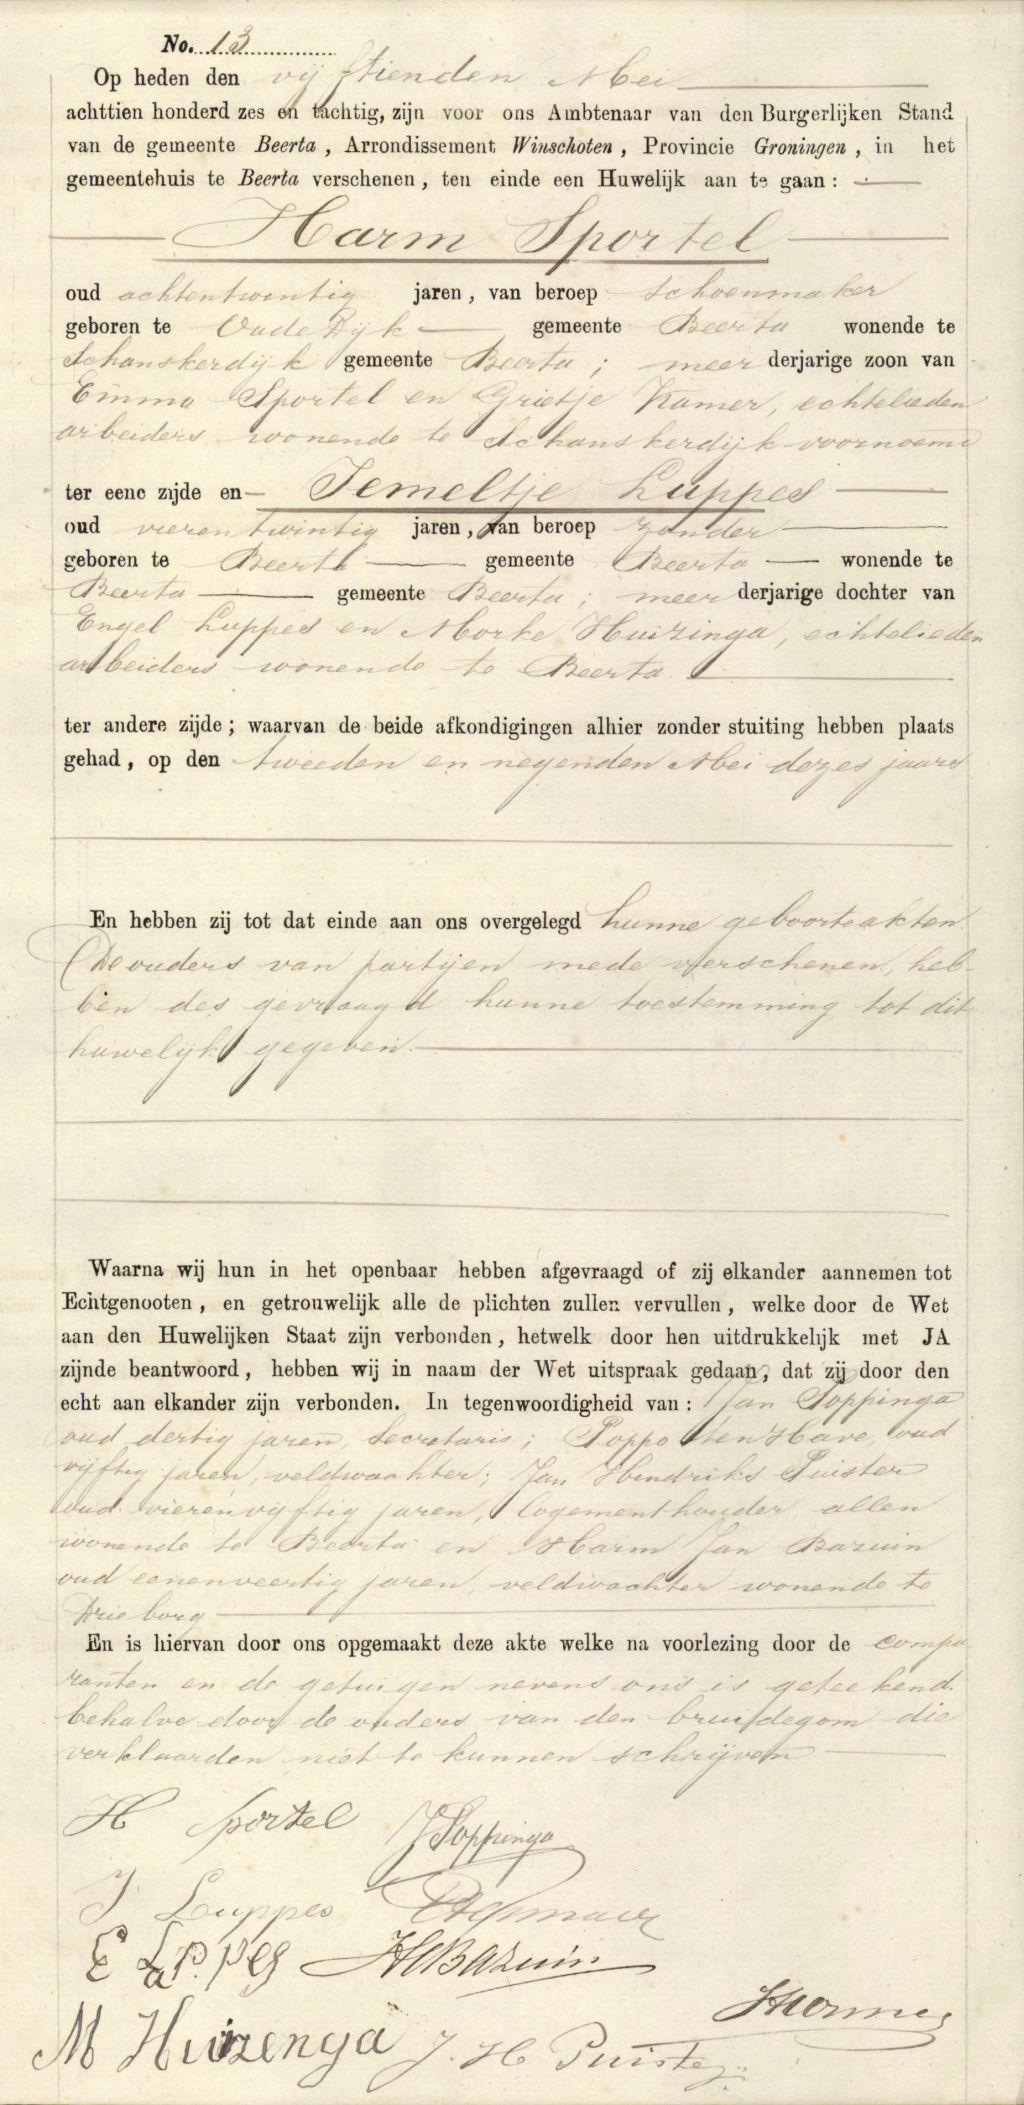 No. 13
Op heden den vijftienden Mei
achttien honderd zes en tachtig, zijn voor ons Ambtenaar van den Burgerlijken Stand
van de gemeente Beerta, Arrondissement Winschoten, Provincie Groningen, in het
gemeentehuis te Beerta verschenen, ten einde een Huwelijk aan te gaan:
Harm Sportel
oud achtentwintig jaren, van beroep schoenmaker
geboren te Oude Dijk gemeente Beerta wonende te
Schanskerdijk gemeente Beerta; meerderjarige zoon van
Emmo Sportel en Grietje Kamer, echtelieden
arbeiders wonende te Schanskerdijk voornoemd
ter eene zijde en Jemeltje Luppes
oud vierentwintig jaren, van beroep zonder
geboren te Beerta gemeente Beerta wonende te
Beerta gemeente Beerta; meerderjarige dochter van
Engel Luppes en Morke Huizinga, echtelieden
arbeiders wonende te Beerta.
ter andere zijde; waarvan de beide afkondigingen alhier zonder stuiting hebben plaats
gehad, op den tweeden en negenden Mei dezes jaars
En hebben zij tot dat einde aan ons overgelegd hunne geboorteakten.
De ouders van partijen mede verschenen, heb-
ben des gevraagd hunne toestemming tot dit
huwelijk gegeven.
Waarna wij hun in het openbaar hebben afgevraagd of zij elkander aannemen tot
Echtgenooten, en getrouwelijk alle de plichten zullen vervullen, welke door de Wet
aan den Huwelijken Staat zijn verbonden, hetwelk door hen uitdrukkelijk met JA
zijnde beantwoord, hebben wij in naam der Wet uitspraak gedaan, dat zij door den
echt aan elkander zijn verbonden. In tegenwoordigheid van: Jan Soppinga
oud dertig jaren, Secretaris; Poppo ten Have, oud
vijftig jaren, veldwachter; Jan Hendriks Puister
oud vierenvijftig jaren, logementhouder, allen
wonende te Beerta en Harm Jan Bazuin
oud eenenveertig jaren, veldwachter wonende te
Drieborg
En is hiervan door ons opgemaakt deze akte welke na voorlezing door de compa
ranten en de getuigen nevens ons is geteekend.
behalve door de ouders van den bruidegom die
verklaarden niet te kunnen schrijven
H Sportel JSoppinga
J Luppes
E Lappes HJBazuin
M Huizenga J. H Puister